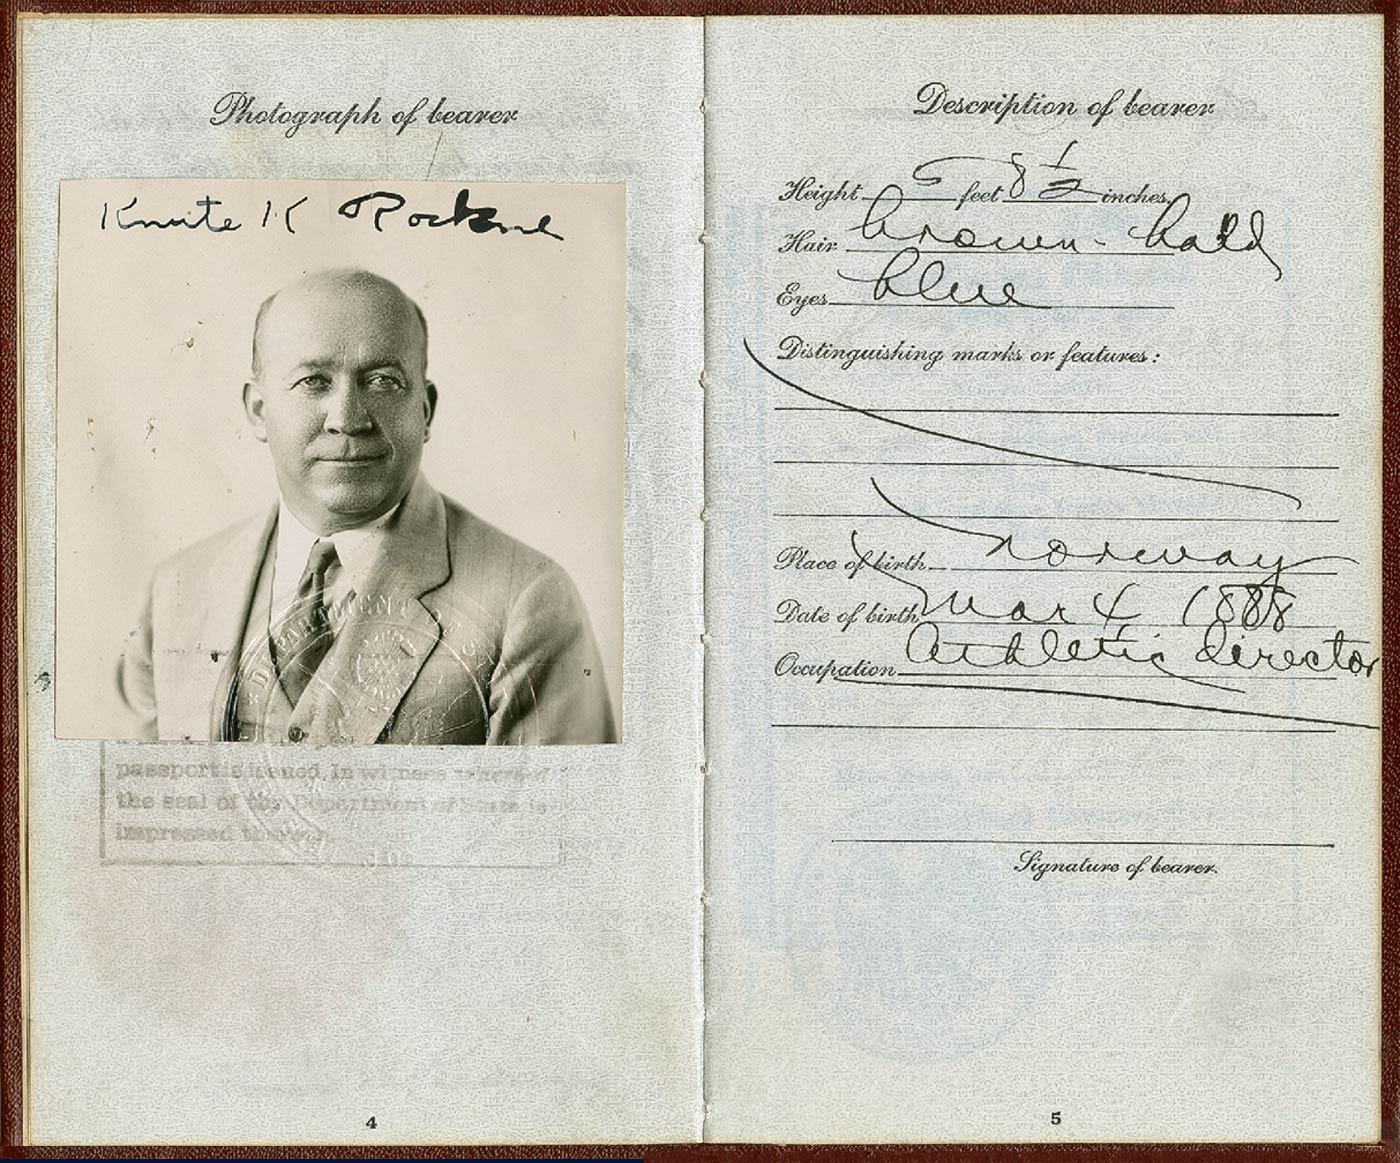 Photograph of bearer
Knute K Rockne
DEPARTMENT OF
passport is issued, In witness whereof
the seal of the Department of State is
impressed thereon.
4
Description of bearer
Height 5 feet 8 1/2 inches.
Hair brown - bald
Eyes blue
Distinguishing marks or features:
Place of birth Norway
Date of birth Mar 4 1888
Occupation Athletic director
Signature of bearer.
5